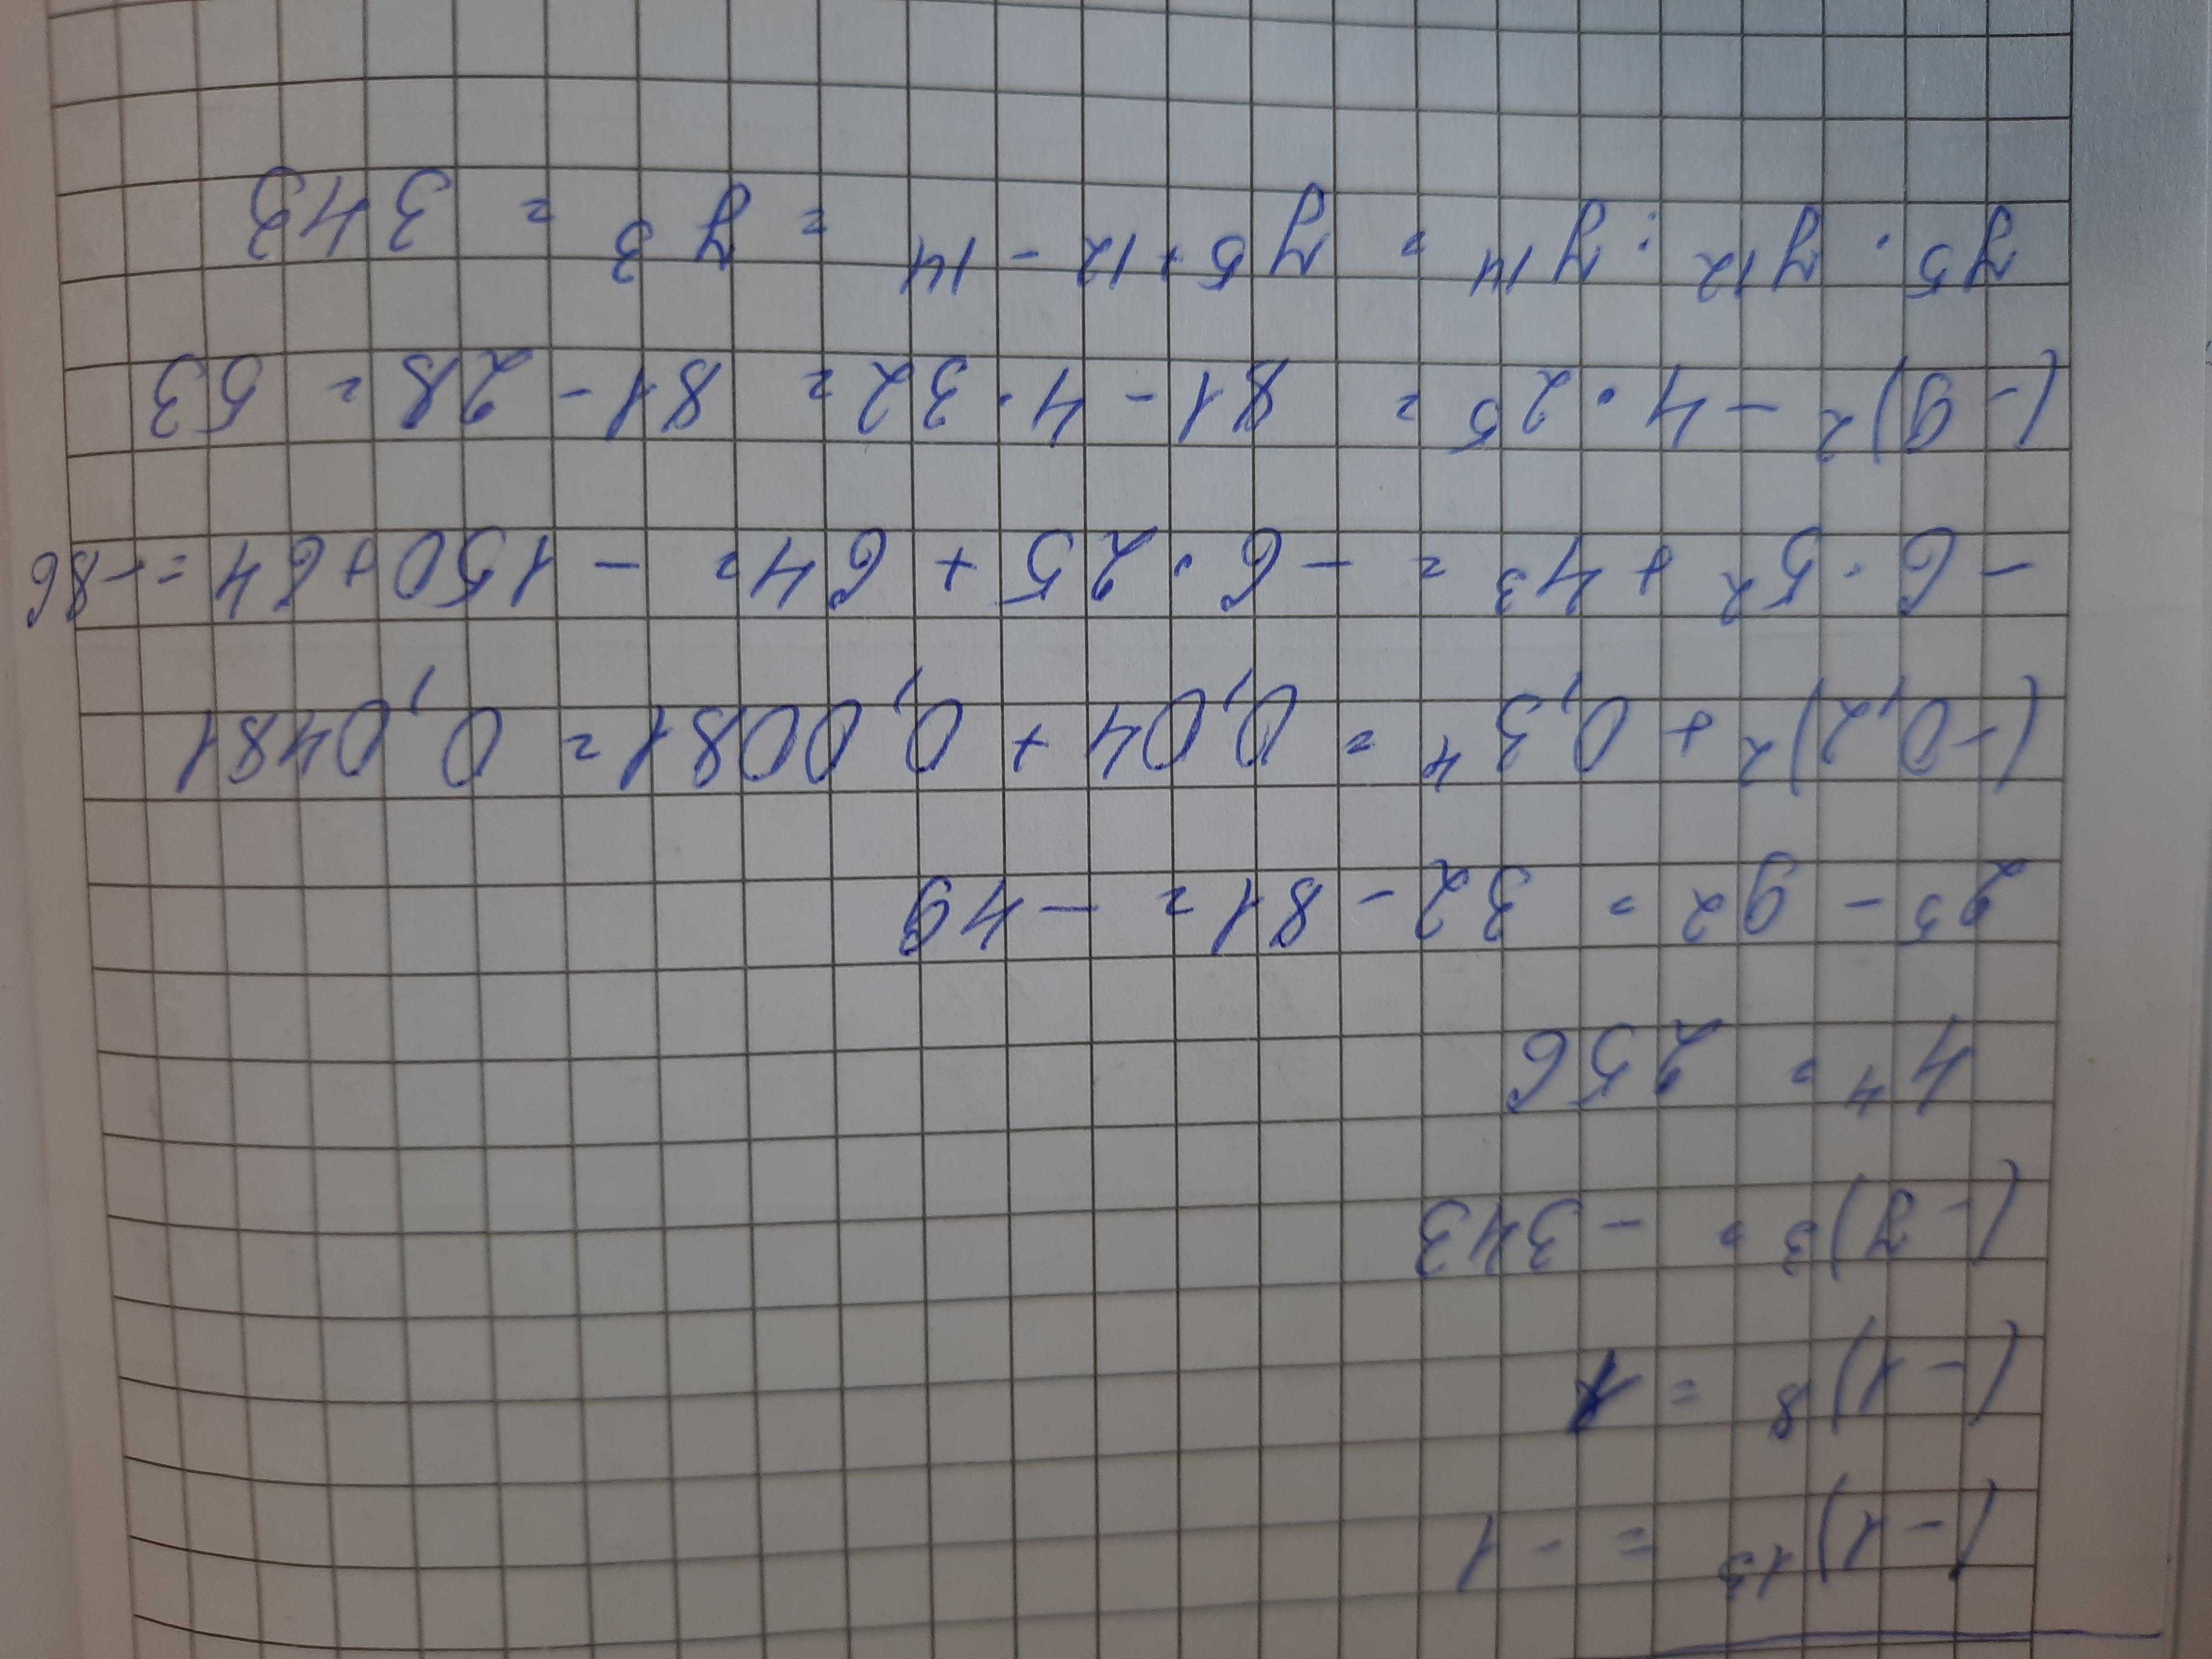 (-1)¹³ = -1
(-1)⁸ = 1
(-7)³ = -343
4⁴ = 256
2⁵ - 9² = 32 - 81 = -49
(-0,2)² + 0,3⁴ = 0,04 + 0,0081 = 0,0481
-6 · 5² + 4³ = -6 · 25 + 64 = -150 + 64 = -86
(-9)² - 4 · 2⁵ = 81 - 4 · 32 = 81 - 28 = 53
7⁵ · 7¹² : 7¹⁴ = 7⁵⁺¹²⁻¹⁴ = 7³ = 343